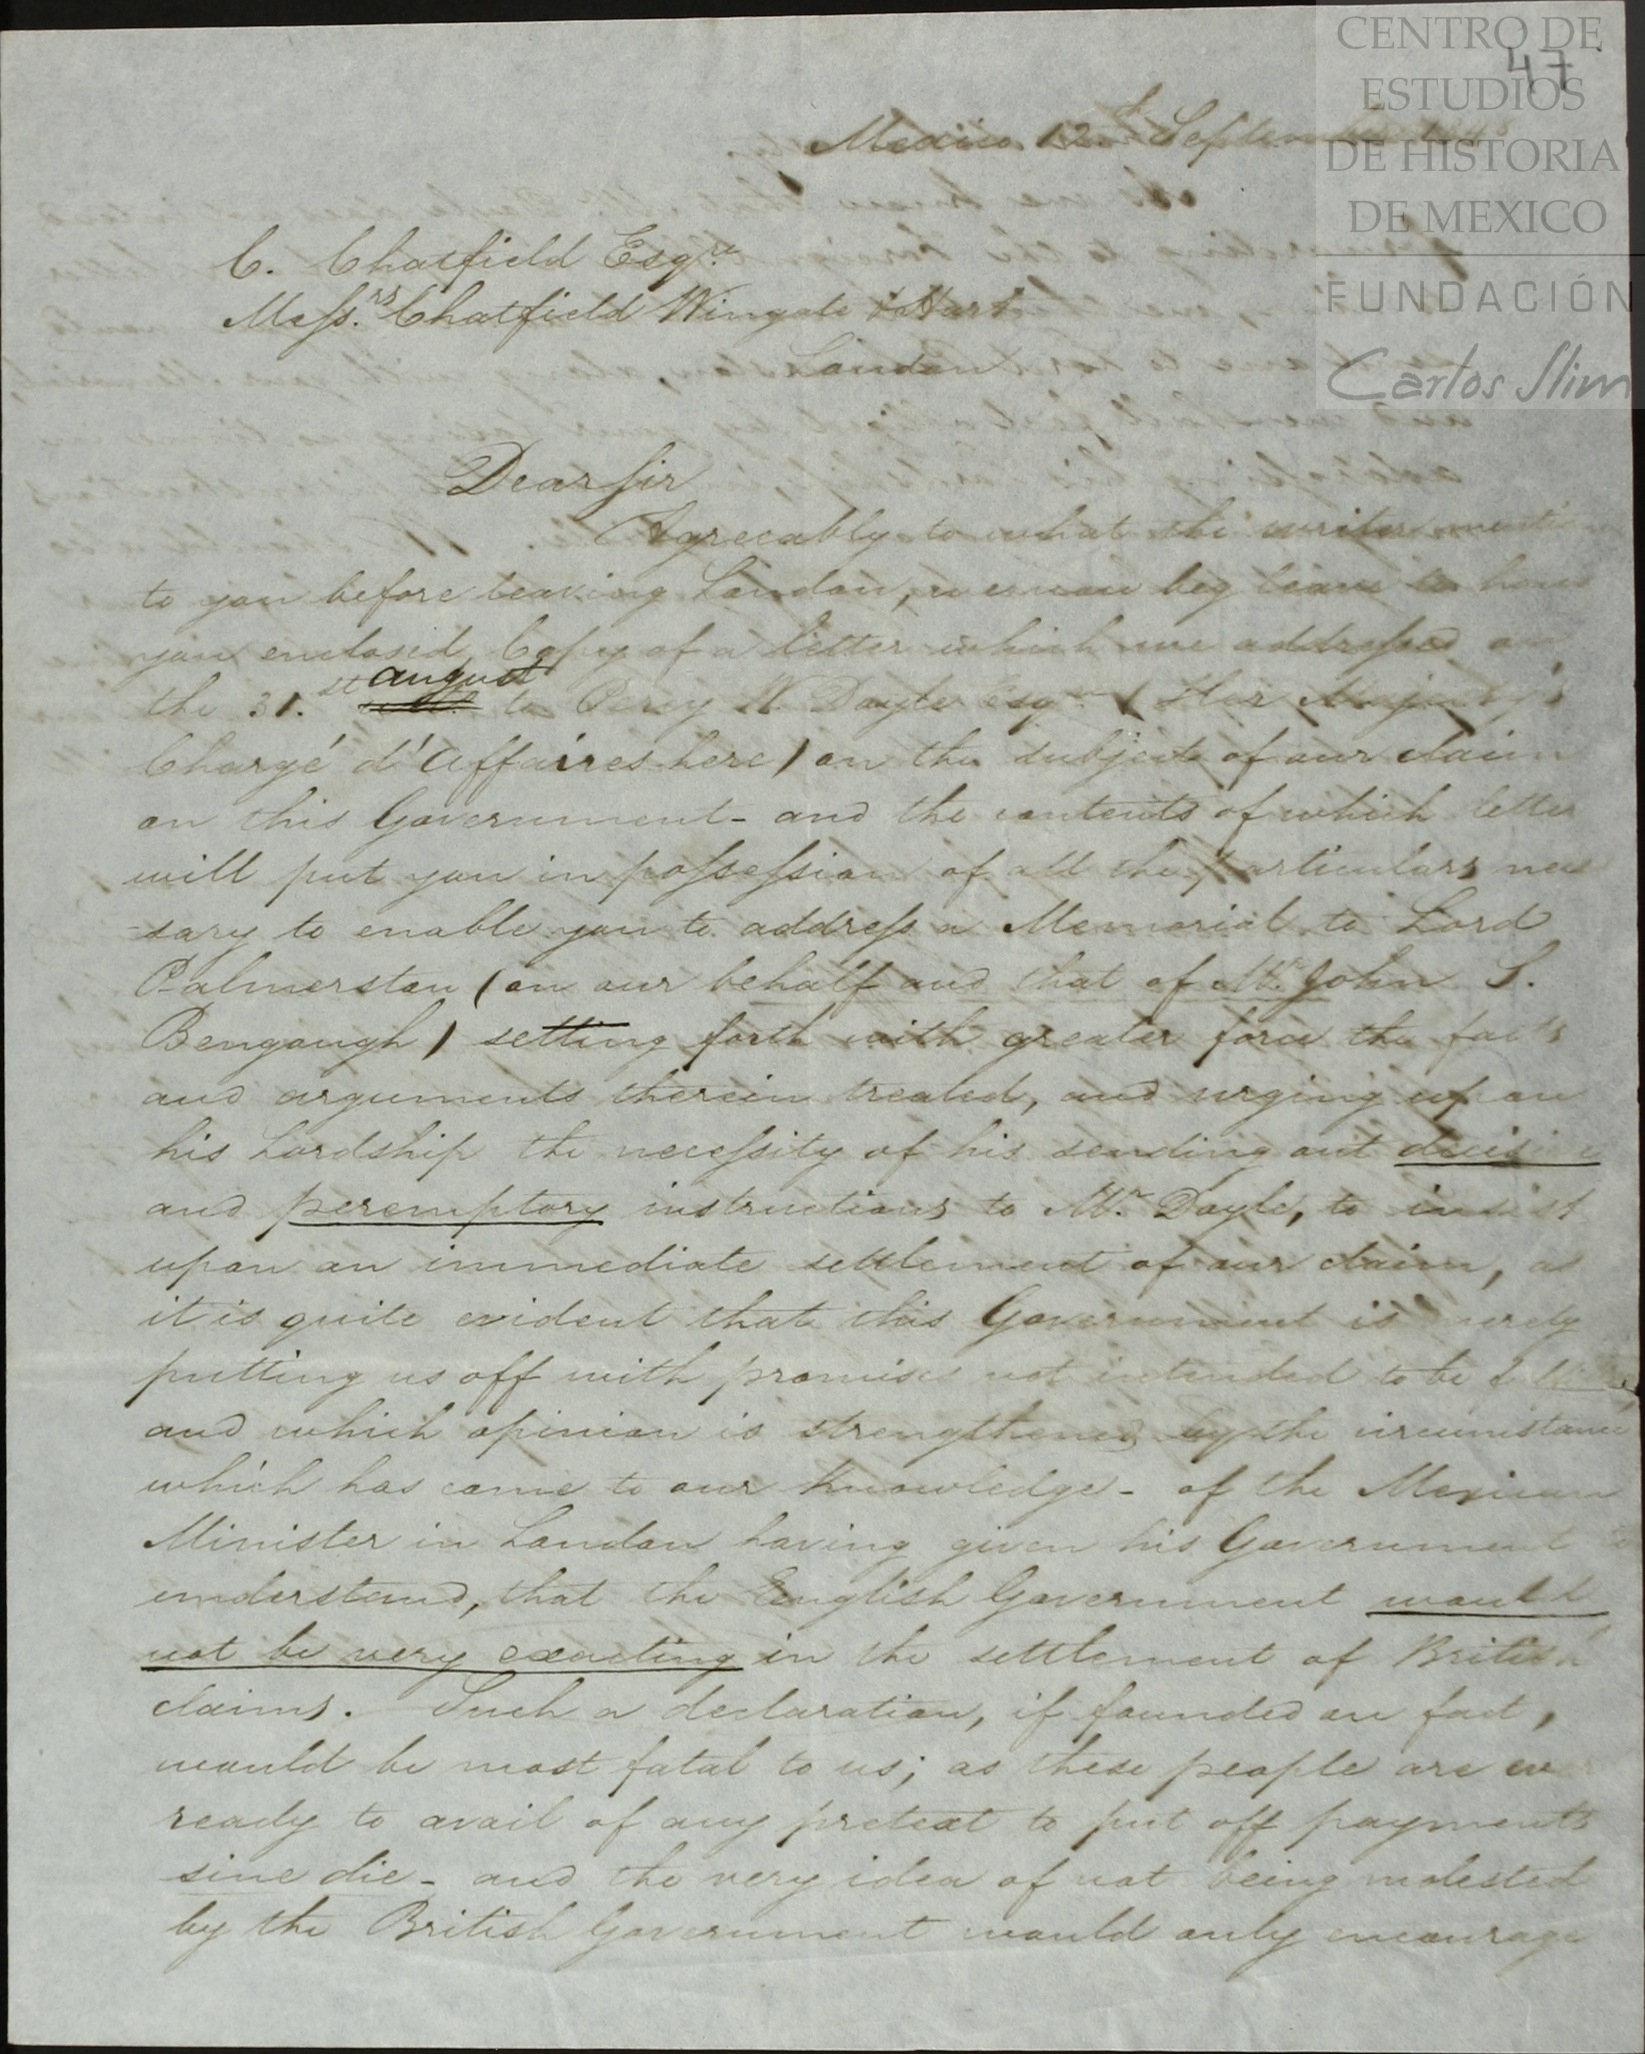 CENTRO DE
ESTUDIOS
DE HISTORIA
DE MEXICO
FUNDACIÓN
Carlos Slim
47
Mexico 12th September
C. Chatfield Esqre
Messrs Chatfield Wingate & Hart
London
Dear Sir
Agreeably to what the writer
to you before leaving London, we now beg leave to hand
you enclosed Copy of a letter which we addressed on
the 31.st august to Percy W. Doyle Esqre (Her Majesty's
Chargé d'Affaires here) on the subject of our claim
on this Government - and the contents of which letter
will put you in possession of all the particulars neces
sary to enable you to address a Memorial to Lord
Palmerston (on our behalf and that of Mr. John S.
Bengough) setting forth with greater force the facts
and arguments therein treated, and urging upon
his Lordship the necessity of his sending out decisive
and peremptory instructions to Mr. Doyle, to insist
upon an immediate settlement of our claim, as
it is quite evident that this Government is merely
putting us off with promises not intended to be
and which opinion is strengthened by the circumstance
which has come to our knowledge - of the Mexican
Minister in London having given his Government to
understand, that the English Government would
not be very exacting in the settlement of British
claims. Such a declaration, if founded on fact,
would be most fatal to us; as these people are ever
ready to avail of any pretext to put off payments
sine die - and the very idea of not being molested
by the British Government would only encourage